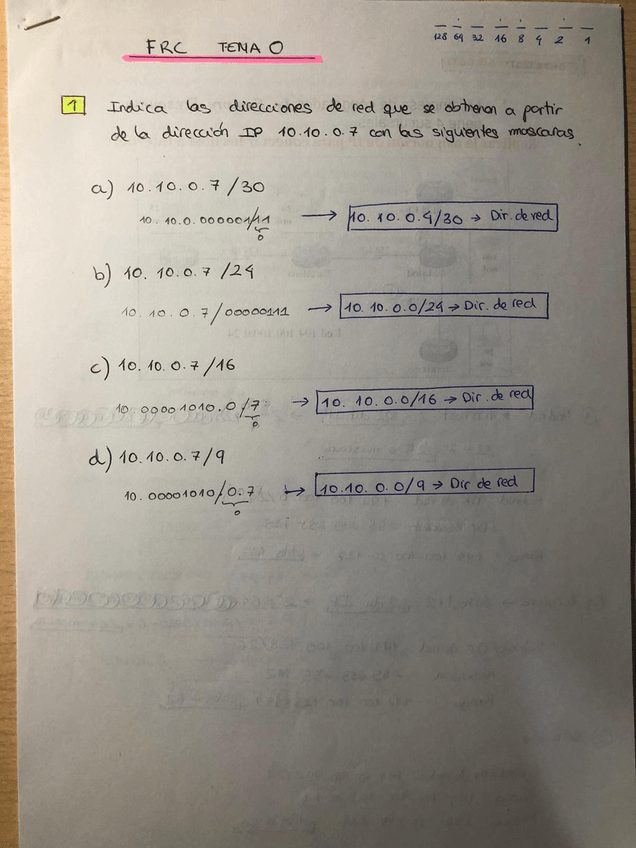 128 64 32 16 8 4 2 1
FRC TEMA 0
1 Indica las direcciones de red que se obtienen a partir
de la dirección IP 10.10.0.7 con las siguientes mascaras.
a) 10.10.0.7/30
10.10.0.000001/11 → 10.10.0.4/30 → Dir. de red
0
b) 10.10.0.7/24
10.10.0.7/00000111 → 10.10.0.0/24 → Dir. de red
c) 10.10.0.7/16
10.00001010.0/7 → 10.10.0.0/16 → Dir. de red
0
d) 10.10.0.7/9
10.00001010/0.7 → 10.10.0.0/9 → Dir de red
0